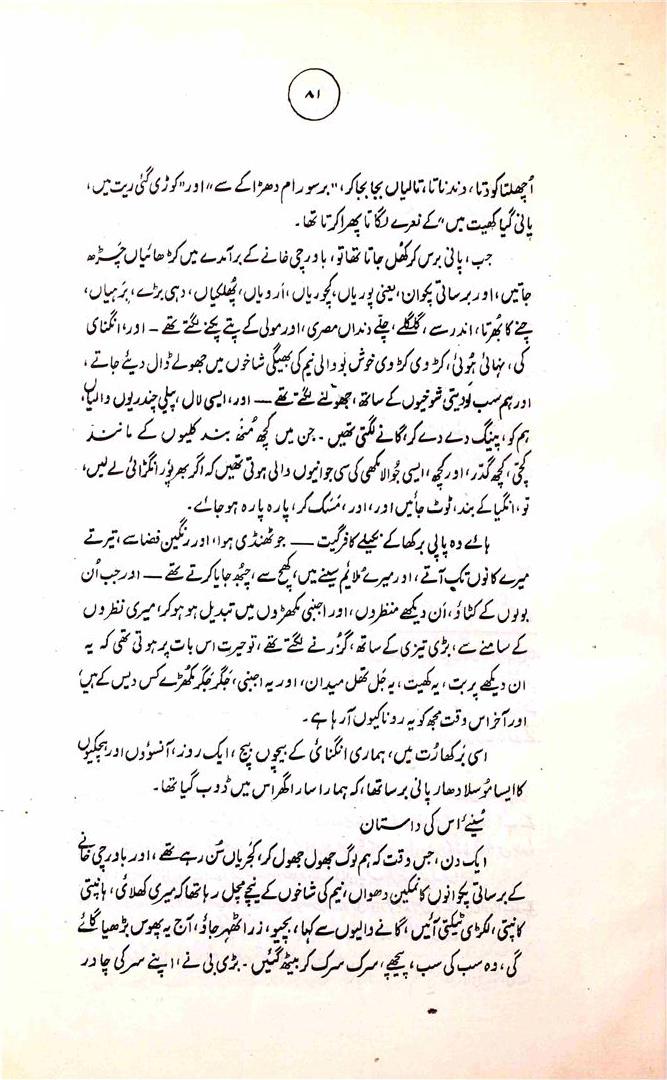 ۸۱
اُچھلتا کودتا، دندناتا، تالیاں بجا بجا کر، "برسو رام دھڑا کے سے" اور "کوڑی گئی ریت میں،
پانی گیا کھیت میں" کے نعرے لگاتا پھرا کرتا تھا۔
جب، پانی برس کر کھُل جاتا تھا تو، باورچی خانے کے برآمدے میں کڑھائیاں چڑھ
جاتیں، اور برساتی پکوان، یعنی پوریاں، کچوریاں، اَرویاں، پھُلکیاں، دہی بڑے، بَرہیاں،
چنے کا بھُرتا، اندرسے، گلگلے، چلّے دنداں مصری، اور مولی کے پتے پکنے لگتے تھے — اور، انگنائی
کی، نہائی ہوئی، کڑوی کڑوی خوش بو والی نیم کی بھیگی شاخوں میں جھولے ڈال دیئے جاتے،
اور ہم سب لَو دیتی شوخیوں کے ساتھ، جھولنے لگتے تھے — اور، ایسی لال، پیلی چندریوں والیاں،
ہم کو، پینگ دے دے کر، گانے لگتی تھیں۔ جن میں کچھ مُنھ بند کلیوں کے مانند
کچّی، کچھ گدّر، اور کچھ، ایسی جُوالا مکھی کی سی جوانیوں والی ہوتی تھیں کہ اگر بھرپور انگڑائی لے لیں،
تو، انگیا کے بند، ٹوٹ جائیں اور، اور، مَسک کر، پارہ پارہ ہو جائے۔
ہائے وہ پاپی برکھا کے بجیلے کافر گیت — جو ٹھنڈی ہوا، اور رنگین فضا سے، تیرتے
میرے کانوں تک آتے، اور میرے مُلائم سینے میں، کھچ سے، چبھ جایا کرتے تھے — اور جب اُن
بولوں کے کٹاؤ، اَن دیکھے منظروں، اور اجنبی مکھڑوں میں تبدیل ہو ہو کر، میری نظروں
کے سامنے سے، بڑی تیزی کے ساتھ، گُزرنے لگتے تھے، تو حیرت اس بات پر ہوتی تھی کہ یہ
ان دیکھے پربت، یہ کھیت، یہ جَل تھل میدان، اور یہ اجنبی، جگر جگر مُکھڑے کس دیس کے ہیں،
اور آخر اس وقت مجھ کو یہ رونا کیوں آرہا ہے۔
اسی برکھارُت میں، ہماری انگنائی کے بیچوں بیچ، ایک روز، آنسوؤں اور ہچکیوں
کا ایسا مُوسلا دھار پانی برسا تھا، کہ ہمارا سارا گھر اس میں ڈوب گیا تھا۔
سُنیے اس کی داستان
ایک دن، جس وقت کہ ہم لوگ جھول جھول کر، کجریاں سُن رہے تھے، اور باورچی خانے
کے برساتی پکوانوں کا نمکین دھواں، نیم کی شاخوں کے نیچے مچل رہا تھا کہ میری کھلائی، ہانپتی
کانپتی، لکڑی ٹیکتی آئیں، گانے والیوں سے کہا، بچیو، زرا ٹھہر جاؤ، آج یہ پھوس بڑھیا گائے
گی، وہ سب کی سب، پیچھے، سرک سرک کر بیٹھ گئیں۔ بڑی بی نے، اپنے سر کی چادر